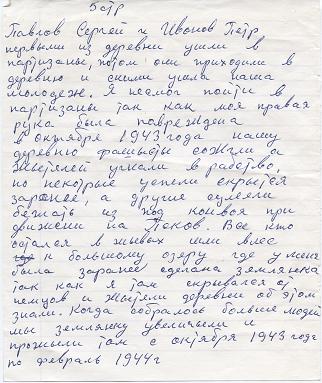 5стр
Павлов Сергей и Иванов Петр
первыми из деревни ушли в
партизаны, потом они приходили в
деревню и с ними ушла наша
молодежь. Я не смог пойти в
партизаны так как моя правая
рука была повреждена
в октября 1943 года нашу
деревню фашисты сожгли а
жителей угнали в рабство,
но некотрые успели скрытся
заранее, а другие сумели
бежать из под конвоя при
движени на Псков. Все кто
остался в живых шли в лес
к большому озеру где у меня
была заранее сделана землянка
так как я там скрывался от
немцов и жители деревни об этом
знали. Когда собралось больше людей
мы землянку увеличили и
прожыли там с октября 1943 года
по февраль 1944 г